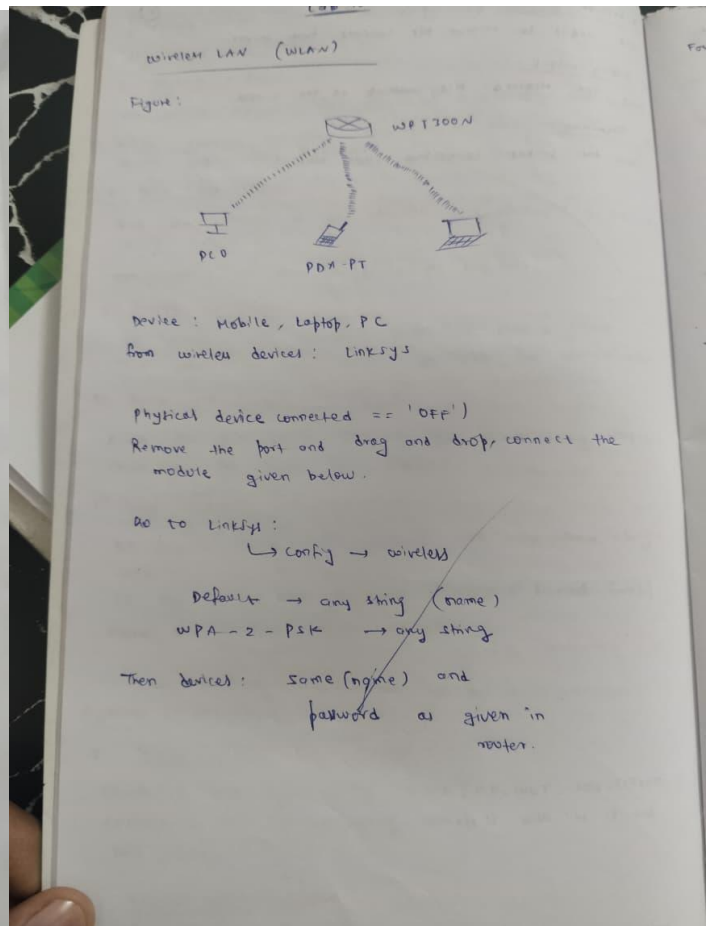 Wireless LAN (WLAN)
Figure :
WPT300N
PC0
PDA-PT
Device : Mobile, Laptop, PC
from wireless devices : Linksys
Physical device connected == 'OFF')
Remove the port and drag and drop, connect the
module given below.
Go to Linksys :
↳ config → wireless
Default → any string (name)
WPA-2-PSK → any string
Then devices : same (name) and
password as given in
router.